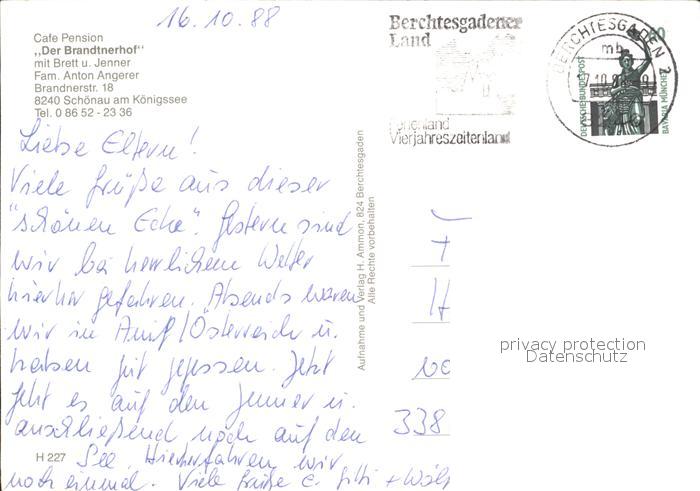 16.10.88
Cafe Pension
„Der Brandtnerhof"
mit Brett u. Jenner
Fam. Anton Angerer
Brandnerstr. 18
8240 Schönau am Königssee
Tel. 0 86 52 - 23 36
Liebe Eltern!
Viele Grüße aus dieser
"schönen Ecke". Gestern sind
wir bei herrlichem Wetter
hierher gefahren. Abends waren
wir in Anif/Österreich u.
haben gut gegessen. Jetzt
geht es auf den Jenner u.
anschließend noch auf den
See. Hierher fahren wir
noch einmal. Viele Grüße
H 227
Aufnahme und Verlag H. Ammon, 824 Berchtesgaden
Alle Rechte vorbehalten
Berchtesgadener
Land
Vierjahreszeitenland
BERCHTESGADEN 2
mb
DEUTSCHE BUNDESPOST
BAVARIA MÜNCHEN
338
privacy protection
Datenschutz